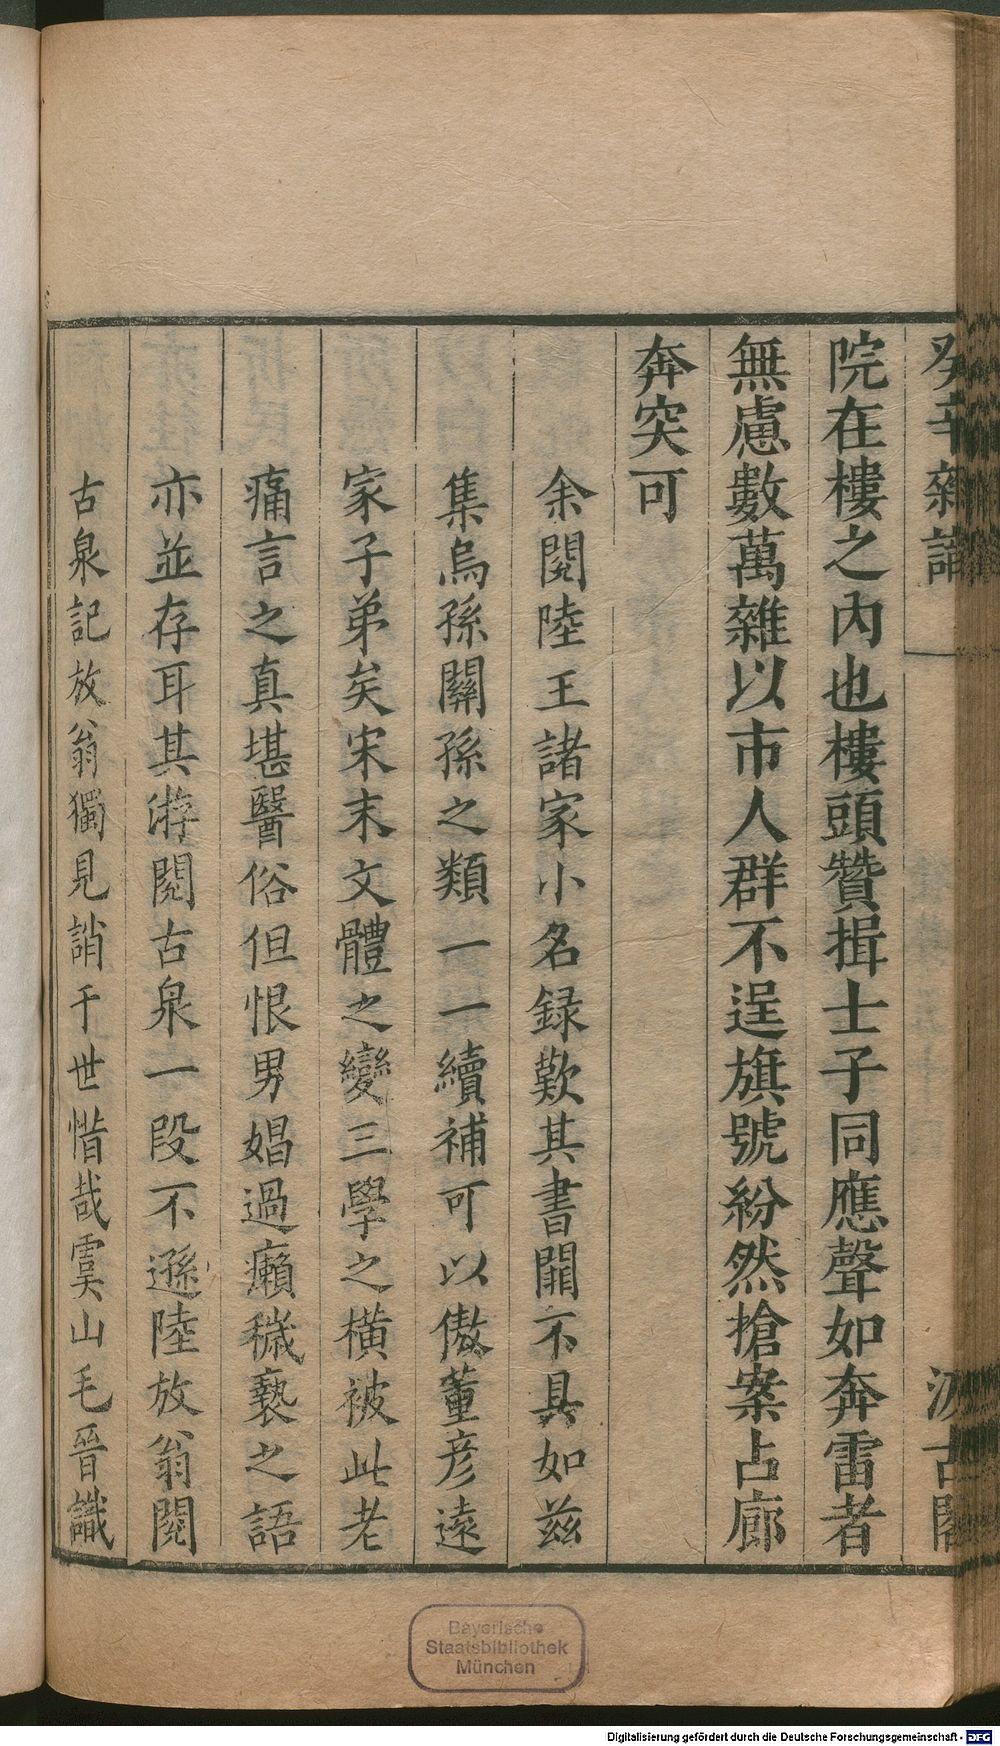 癸辛雜識
汲古閣
院在樓之內也樓頭贊揖士子同應聲如奔雷者
無慮數萬雜以市人群不逞旗號紛然搶案占廊
奔突可
余閱陸王諸家小名録歎其書闕不具如兹
集烏孫關孫之類一一續補可以傲董彥遠
家子弟矣宋末文體之變三學之橫被此老
痛言之真堪醫俗但恨男娼過癩穢褻之語
亦並存耳其游閱古泉一段不遜陸放翁閱
古泉記放翁獨見誚于世惜哉虞山毛晉識
Bayerische
Staatsbibliothek
München
Digitalisierung gefördert durch die Deutsche Forschungsgemeinschaft - DFG